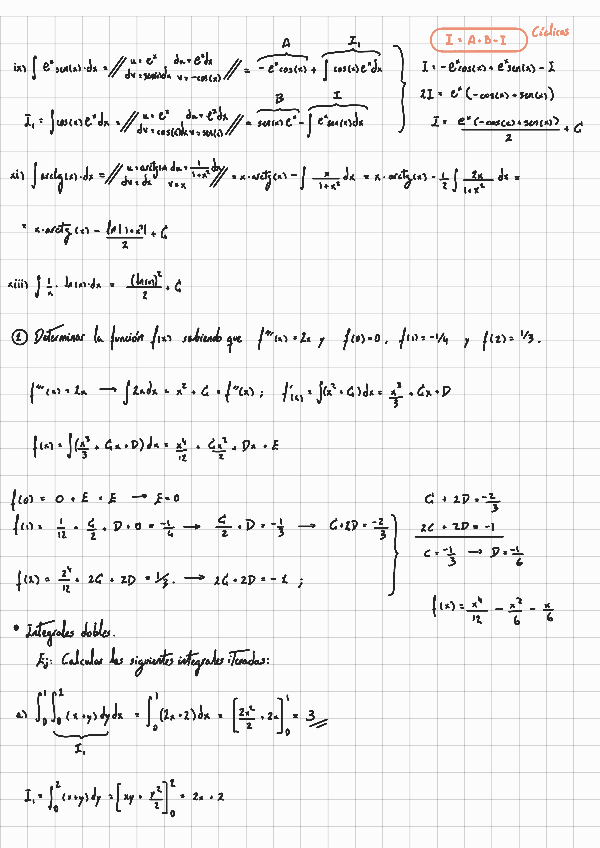 I = A + B - I Cíclicas
ix) ∫ eˣ sen(x)·dx = // u = eˣ du = eˣdx dv = sen(x)dx v = -cos(x) // = -eˣcos(x) + ∫ cos(x)eˣdx
A I₁
I = -eˣcos(x) + eˣsen(x) - I
2I = eˣ(-cos(x) + sen(x))
I₁ = ∫ cos(x) eˣdx = // u = eˣ du = eˣdx dv = cos(x)dx v = sen(x) // = sen(x)eˣ - ∫ eˣsen(x)dx
B I
I = eˣ(-cos(x) + sen(x))/2 + C
xi) ∫ arctg(x)·dx = // u = arctg(x) du = 1/(1+x²) dx dv = dx v = x // = x·arctg(x) - ∫ x/(1+x²) dx = x·arctg(x) - 1/2 ∫ 2x/(1+x²) dx =
= x·arctg(x) - ln|1+x²|/2 + C
xiii) ∫ 1/x · ln(x)·dx = (ln(x))²/2 + C
② Determinar la función f(x) sabiendo que f'''(x) = 2x y f(0) = 0, f(1) = -1/4 y f(2) = 1/3.
f'''(x) = 2x → ∫ 2xdx = x² + C = f''(x); f'(x) = ∫(x² + C)dx = x³/3 + Cx + D
f(x) = ∫(x³/3 + Cx + D)dx = x⁴/12 + Cx²/2 + Dx + E
f(0) = 0 + E = E → E=0
f(1) = 1/12 + C/2 + D + 0 = -1/4 → C/2 + D = -1/3 → C+2D = -2/3
f(2) = 2⁴/12 + 2C + 2D = 1/3. → 2C + 2D = -1;
C + 2D = -2/3
2C + 2D = -1
C = -1/3 → D = -1/6
f(x) = x⁴/12 - x²/6 - x/6
• Integrales dobles.
Ej: Calcular las siguientes integrales iteradas:
a) ∫₀¹∫₀² (x+y) dy dx = ∫₀¹ (2x+2)dx = [2x²/2 + 2x]₀¹ = 3
I₁
I₁ = ∫₀² (x+y)dy = [xy + y²/2]₀² = 2x + 2